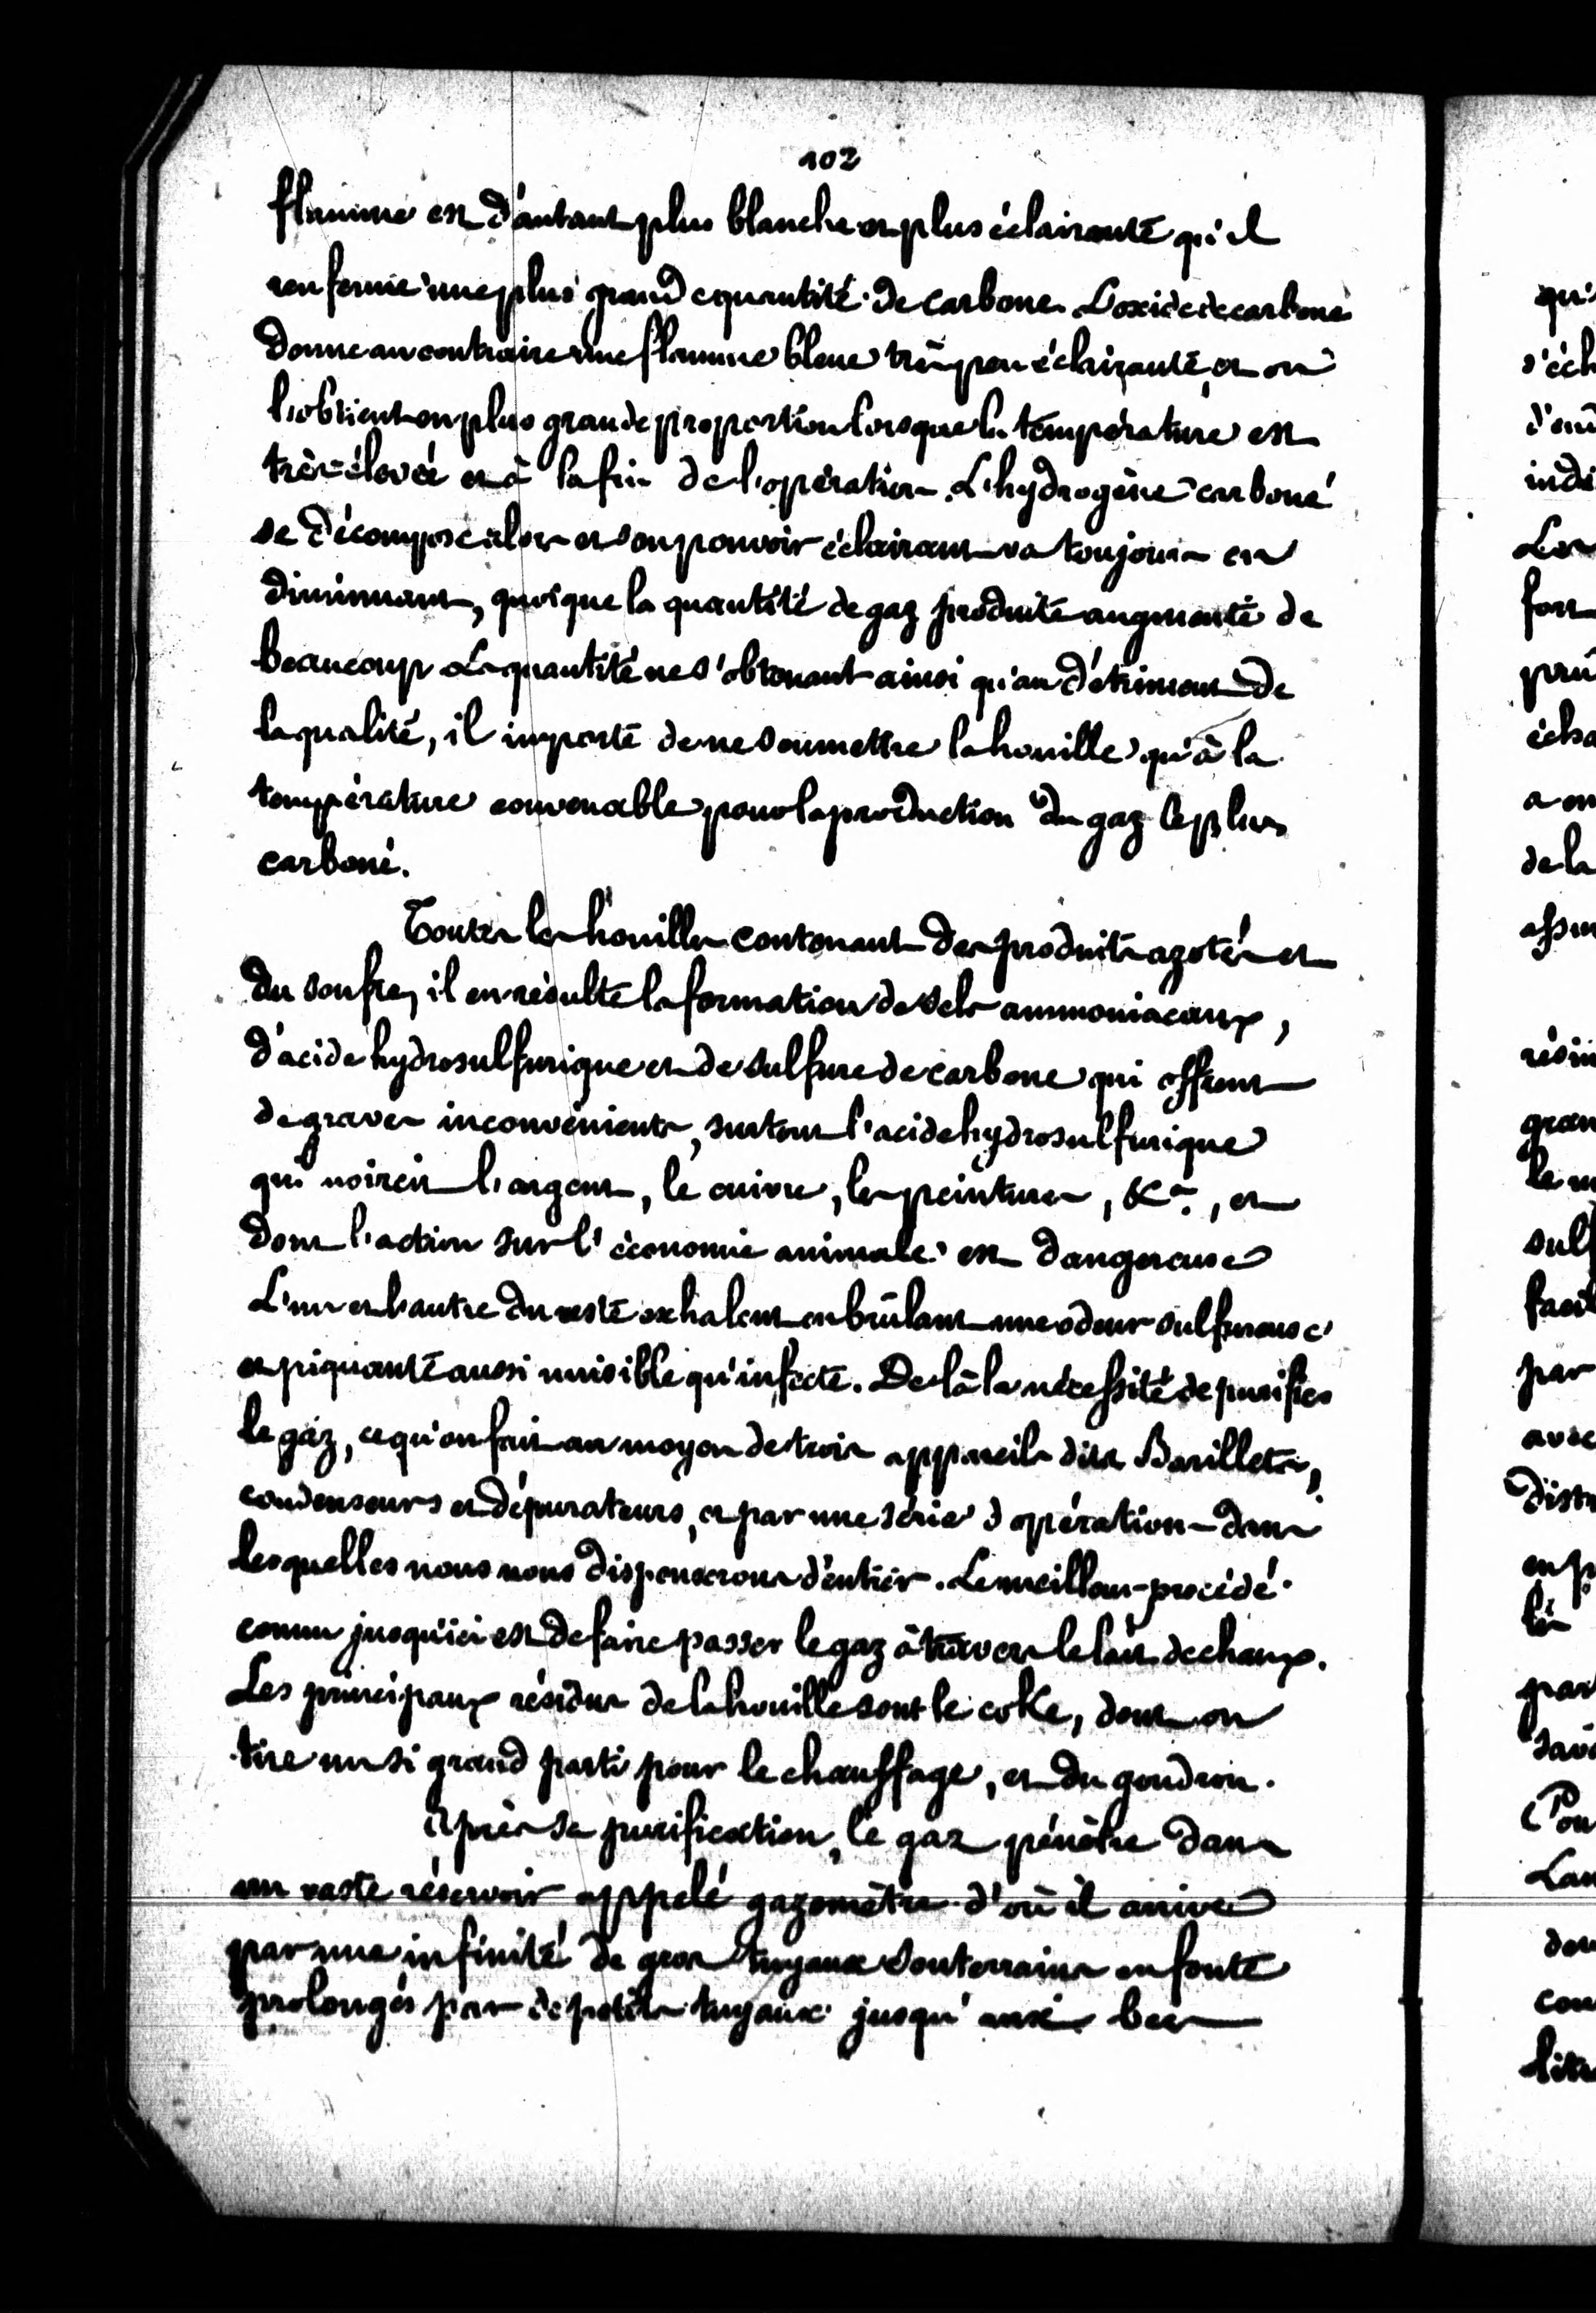 102
flamme est d'autant plus blanche et plus éclairante qu'il
renferme une plus grande quantité de carbone. L'oxide de carbone
donne au contraire une flamme bleue très peu éclairante, et on
l'obtient en plus grande proportion lorsque la température est
très-élevée et à la fin de l'opération. L'hydrogène carboné
se décompose alors et son pouvoir éclairant va toujours en
diminuant, quoique la quantité de gaz produite augmente de
beaucoup. La quantité ne s'obtenant ainsi qu'au détriment de
la qualité, il importe de ne soumettre la houille qu'à la
température convenable pour la production du gaz le plus
carboné.
Toutes les houilles contenant des produits azotés et
du soufre, il en résulte la formation de sels ammoniacaux,
d'acide hydrosulfurique et de sulfure de carbone qui offrent
de graves inconvénients, surtout l'acide hydrosulfurique
qui noircit l'argent, le cuivre, les peintures, &a., et
dont l'action sur l'économie animale est dangereuse
L'un et l'autre du reste exhalent en brûlant une odeur sulfureuse
et piquante aussi nuisible qu'infecte. De là la nécessité de purifier
le gaz, ce qu'on fait au moyen de trois appareils dits Barillets,
condenseurs et dépurateurs, et par une série d'opérations dans
lesquelles nous nous dispenserons d'entrer. Le meilleur procédé
connu jusqu'ici est de faire passer le gaz à travers le lait de chaux.
Les principaux résidus de la houille sont le coke, dont on
tire un si grand parti pour le chauffage, et du goudron.
Après sa purification, le gaz pénètre dans
un vaste réservoir appelé gazomètre d'où il arrive
par une infinité de gros tuyaux souterrains en fonte
prolongés par de petits tuyaux jusqu'aux becs